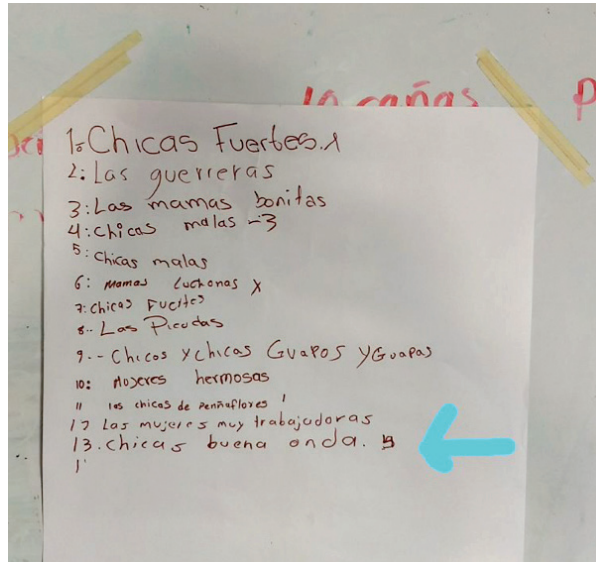 10 cañas
P
1. Chicas Fuertes. 1
2: Las guerreras
3: Las mamas bonitas
4: chicas malas - 3
5: Chicas malas
6: Mamas Luchonas X
7: chicas Fuertes
8.- Las Picudas
9.- Chicos y chicas Guapos y Guapas
10: Mujeres hermosas
11 las chicas de Peññaflores 1
12 Las mujeres muy trabajadoras
13. chicas buena onda. 5
1